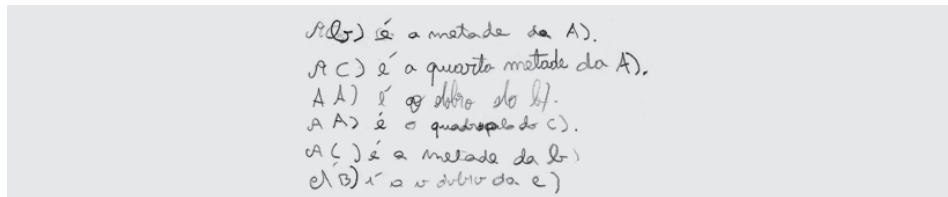 A b) é a metade da A).
A C) é a quarta metade da A).
A A) é o dobro do b).
A A) é o quadruplo do C).
A C) é a metade da b)
A B) é o dobro da c)